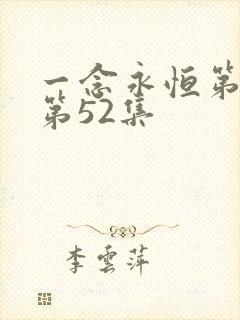 一念永恒第
第52集
李雲萍